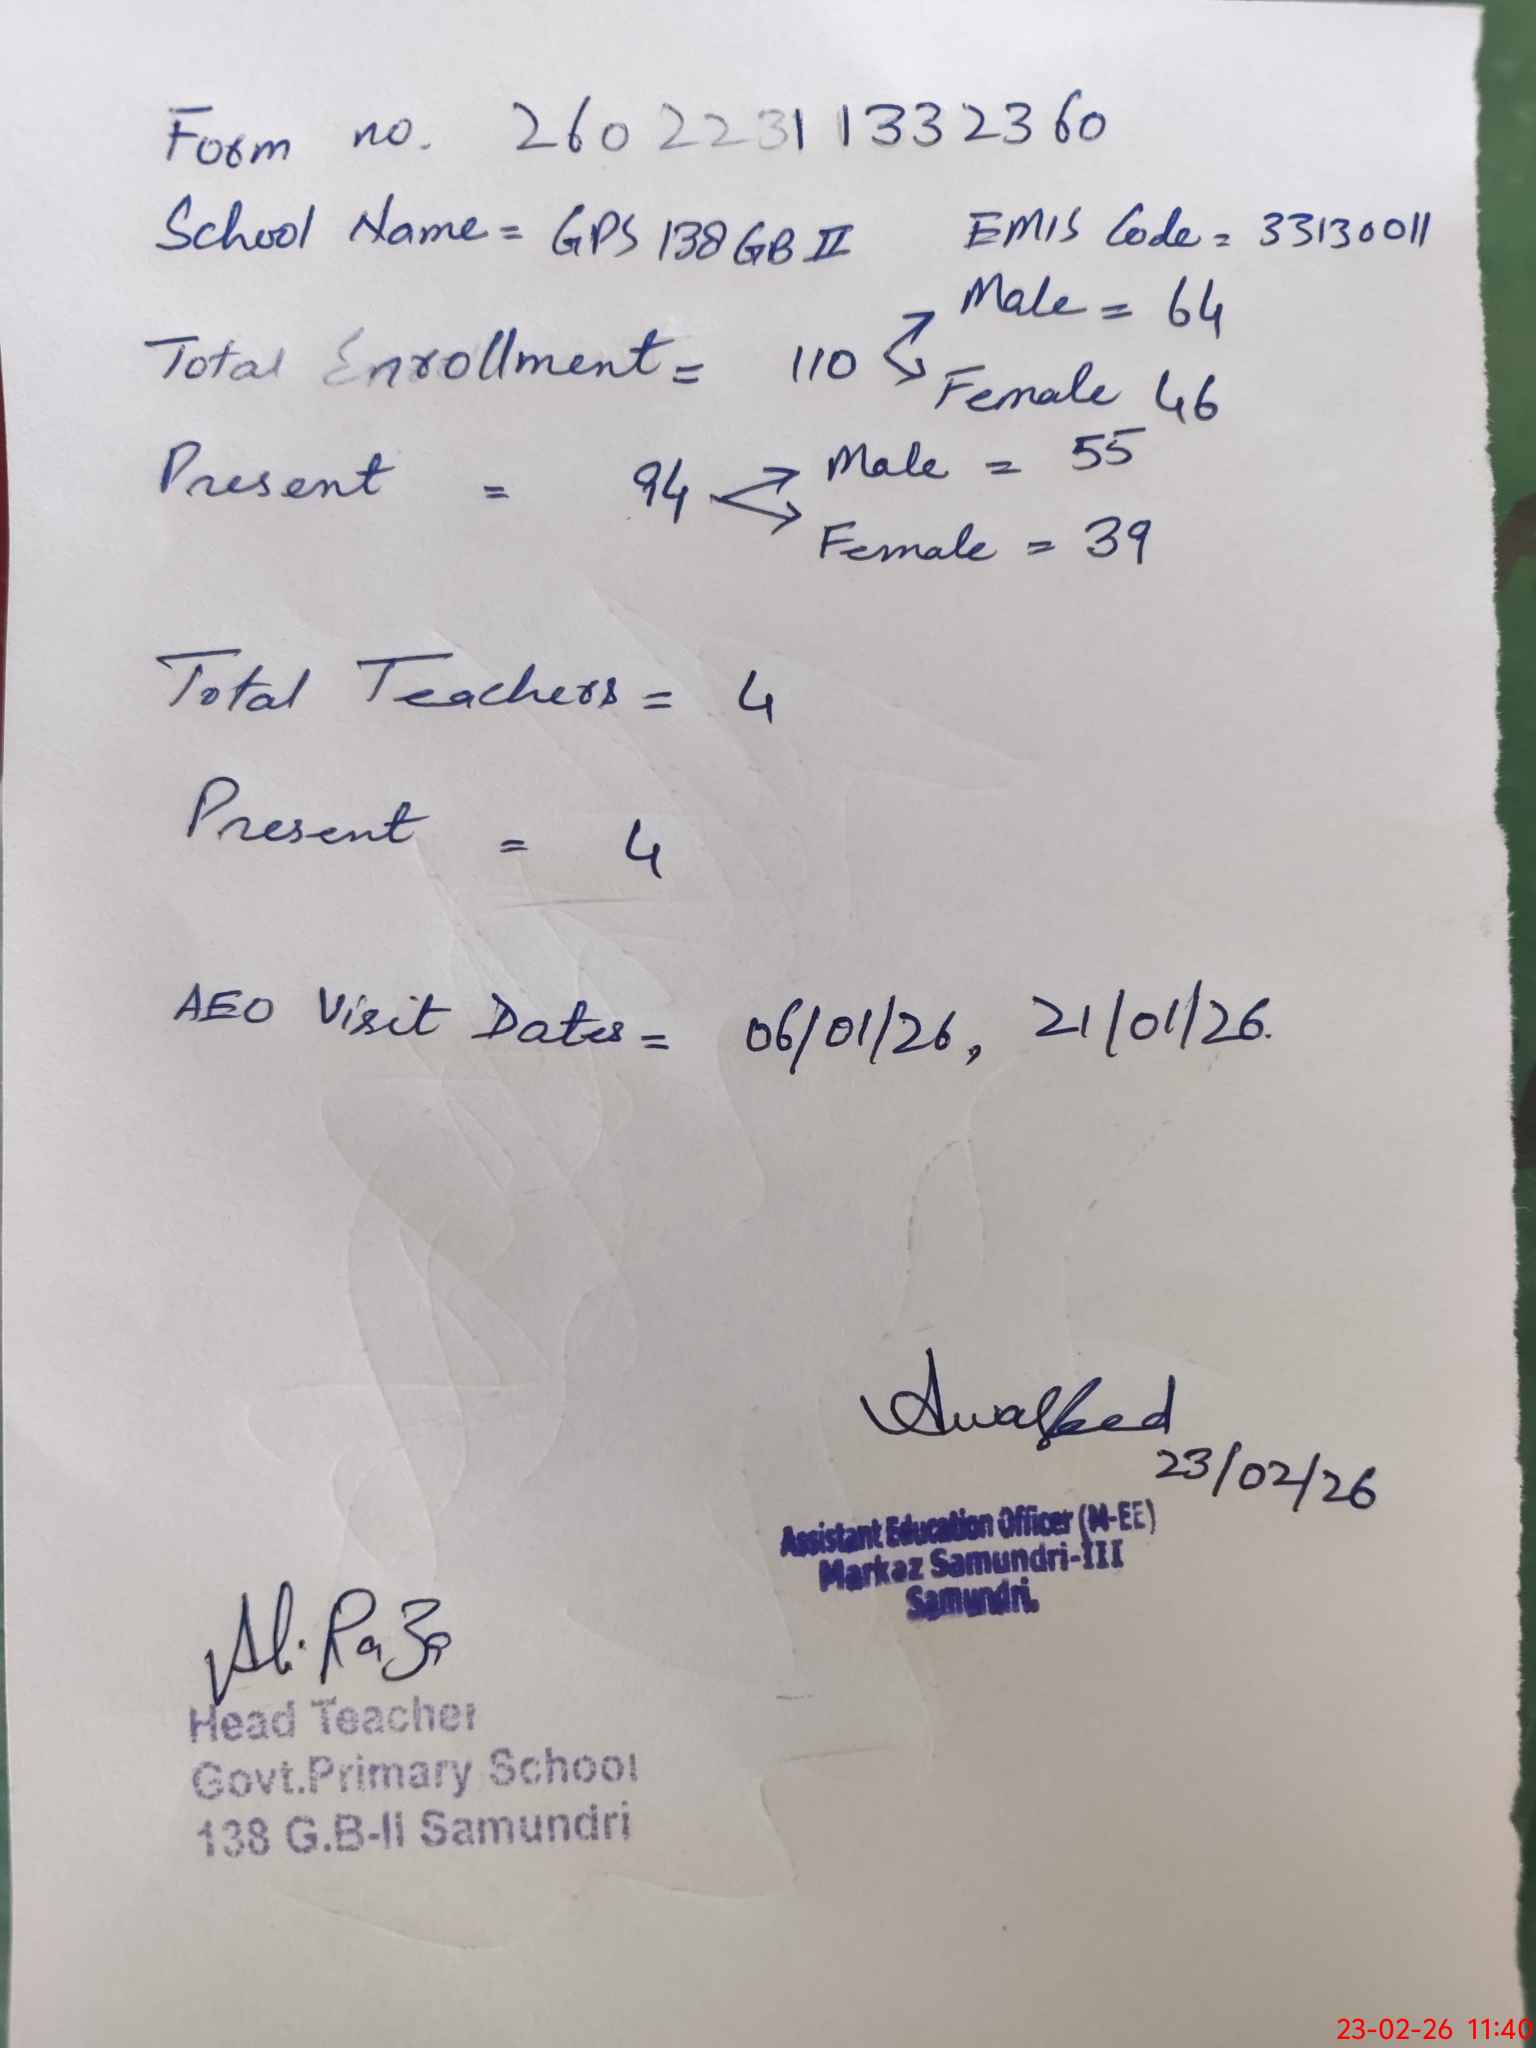 Form no. 260 2231 1332360
School Name = GPS 138 GB II EMIS Code = 33130011
Total Enrollment = 110 Male = 64
Female 46
Present = 94 Male = 55
Female = 39
Total Teachers = 4
Present = 4
AEO Visit Dates = 06/01/26, 21/01/26.
23/02/26
Assistant Education Officer (M-EE)
Markaz Samundri-III
Samundri.
Ali Raza
Head Teacher
Govt.Primary School
138 G.B-II Samundri
23-02-26 11:40